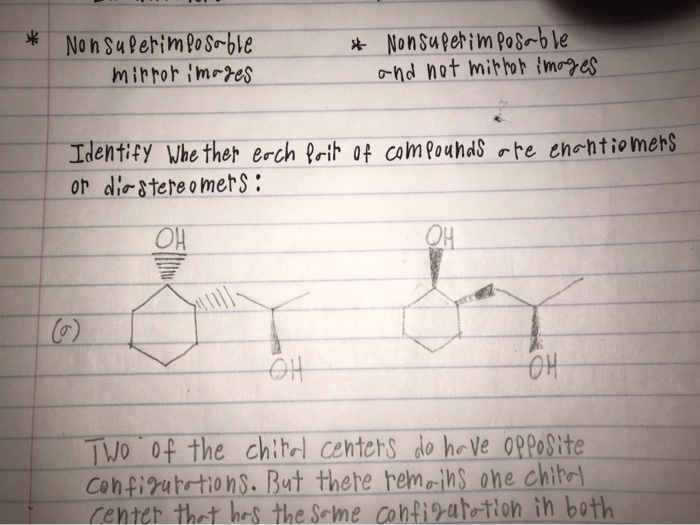 * Nonsuperimposable * Nonsuperimposable
mirror images and not mirror images
Identify whether each pair of compounds are enantiomers
or diastereomers:
OH OH
(a)
OH OH
Two of the chiral centers do have opposite
configurations. But there remains one chiral
center that has the same configuration in both